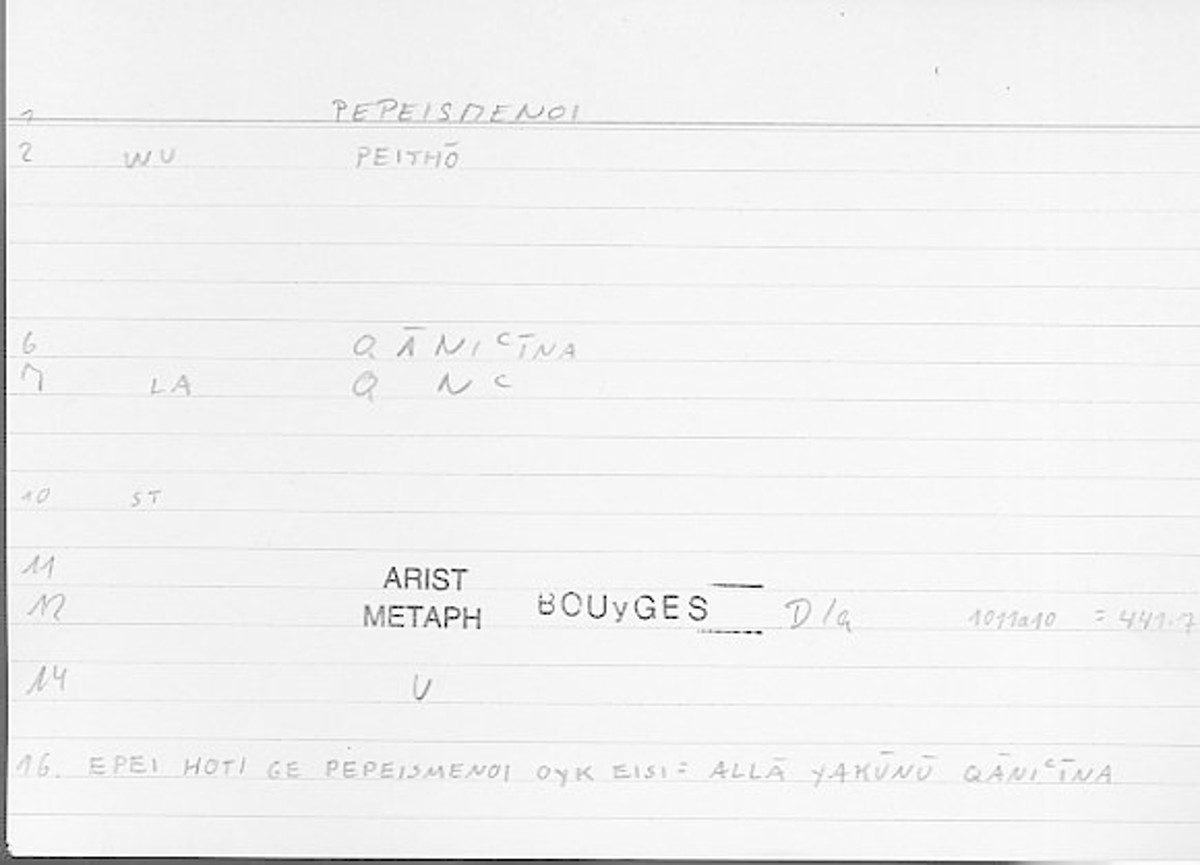 1 PEPEISMENOI
2 WU PEITHŌ
6 QĀNIʿĪNA
7 LA Q Nʿ
10 ST
11 ARIST
12 METAPH BOUyGES D/a 1011a10 = 441.7
14 V
16. EPEI HOTI GE PEPEISMENOI OyK EISI = ALLĀ yAKŪNŪ QĀNIʿĪNA